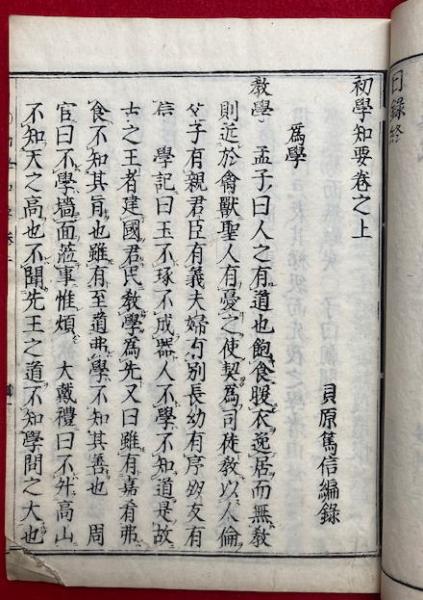 目錄終
初學知要卷之上
貝原篤信編錄
爲學
敎學 孟子曰人之有道也飽食煖衣逸居而無敎
則近於禽獸聖人有憂之使契爲司徒敎以人倫
父子有親君臣有義夫婦有別長幼有序朋友有
信 學記曰玉不琢不成器人不學不知道是故
古之王者建國君民敎學爲先又曰雖有嘉肴弗
食不知其旨也雖有至道弗學不知其善也 周
官曰不學墻面莅事惟煩 大戴禮曰不升高山
不知天之高也不聞先王之道不知學問之大也